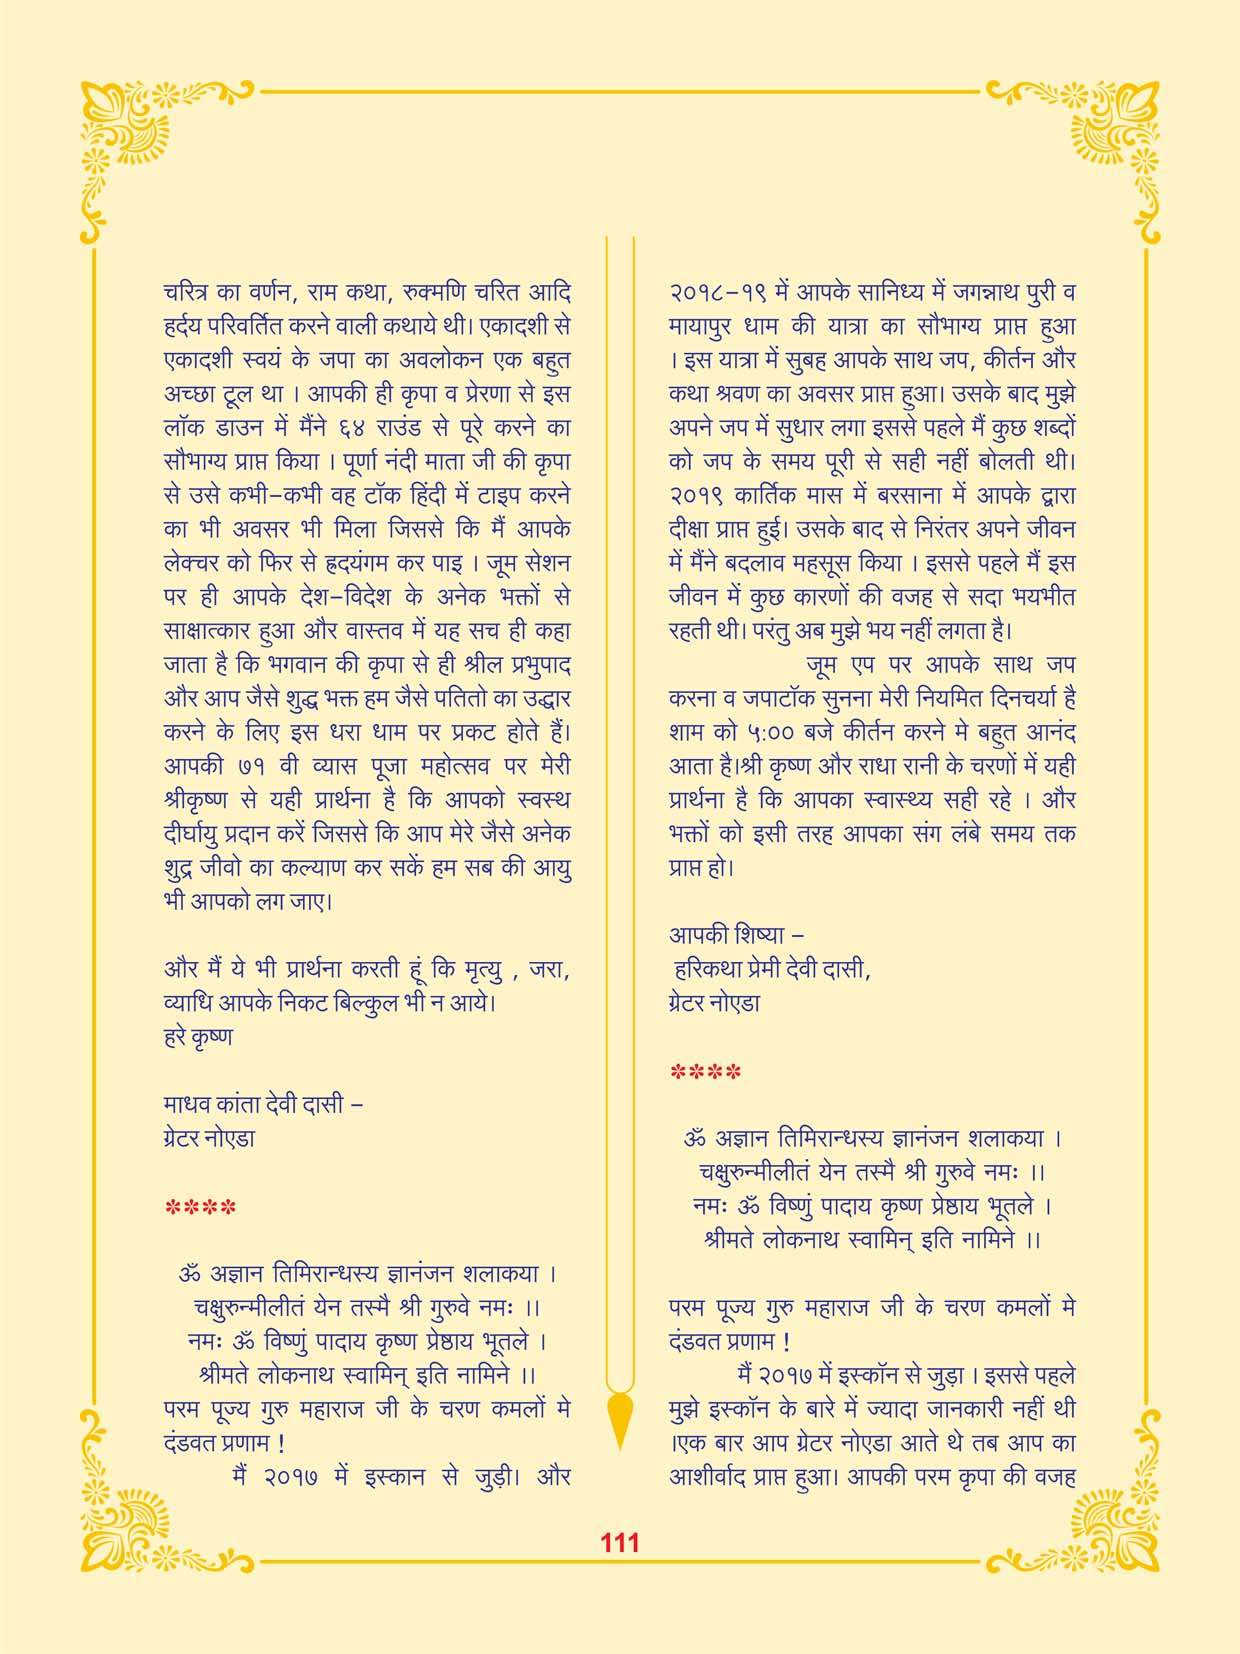 चरित्र का वर्णन, राम कथा, रुक्मणि चरित आदि
हर्दय परिवर्तित करने वाली कथाये थी। एकादशी से
एकादशी स्वयं के जपा का अवलोकन एक बहुत
अच्छा टूल था । आपकी ही कृपा व प्रेरणा से इस
लॉक डाउन में मैंने ६४ राउंड से पूरे करने का
सौभाग्य प्राप्त किया । पूर्णा नंदी माता जी की कृपा
से उसे कभी-कभी वह टॉक हिंदी में टाइप करने
का भी अवसर भी मिला जिससे कि मैं आपके
लेक्चर को फिर से ह्रदयंगम कर पाइ । जूम सेशन
पर ही आपके देश-विदेश के अनेक भक्तों से
साक्षात्कार हुआ और वास्तव में यह सच ही कहा
जाता है कि भगवान की कृपा से ही श्रील प्रभुपाद
और आप जैसे शुद्ध भक्त हम जैसे पतितो का उद्धार
करने के लिए इस धरा धाम पर प्रकट होते हैं।
आपकी ७१ वी व्यास पूजा महोत्सव पर मेरी
श्रीकृष्ण से यही प्रार्थना है कि आपको स्वस्थ
दीर्घायु प्रदान करें जिससे कि आप मेरे जैसे अनेक
शुद्र जीवो का कल्याण कर सकें हम सब की आयु
भी आपको लग जाए।
और मैं ये भी प्रार्थना करती हूं कि मृत्यु , जरा,
व्याधि आपके निकट बिल्कुल भी न आये।
हरे कृष्ण
माधव कांता देवी दासी -
ग्रेटर नोएडा
****
ॐ अज्ञान तिमिरान्धस्य ज्ञानंजन शलाकया ।
चक्षुरुन्मीलीतं येन तस्मै श्री गुरुवे नमः ।।
नमः ॐ विष्णुं पादाय कृष्ण प्रेष्ठाय भूतले ।
श्रीमते लोकनाथ स्वामिन् इति नामिने ।।
परम पूज्य गुरु महाराज जी के चरण कमलों मे
दंडवत प्रणाम !
मैं २०१७ में इस्कान से जुड़ी। और
२०१८-१९ में आपके सानिध्य में जगन्नाथ पुरी व
मायापुर धाम की यात्रा का सौभाग्य प्राप्त हुआ
। इस यात्रा में सुबह आपके साथ जप, कीर्तन और
कथा श्रवण का अवसर प्राप्त हुआ। उसके बाद मुझे
अपने जप में सुधार लगा इससे पहले मैं कुछ शब्दों
को जप के समय पूरी से सही नहीं बोलती थी।
२०१९ कार्तिक मास में बरसाना में आपके द्वारा
दीक्षा प्राप्त हुई। उसके बाद से निरंतर अपने जीवन
में मैंने बदलाव महसूस किया । इससे पहले मैं इस
जीवन में कुछ कारणों की वजह से सदा भयभीत
रहती थी। परंतु अब मुझे भय नहीं लगता है।
जूम एप पर आपके साथ जप
करना व जपाटॉक सुनना मेरी नियमित दिनचर्या है
शाम को ५:०० बजे कीर्तन करने मे बहुत आनंद
आता है।श्री कृष्ण और राधा रानी के चरणों में यही
प्रार्थना है कि आपका स्वास्थ्य सही रहे । और
भक्तों को इसी तरह आपका संग लंबे समय तक
प्राप्त हो।
आपकी शिष्या -
हरिकथा प्रेमी देवी दासी,
ग्रेटर नोएडा
****
ॐ अज्ञान तिमिरान्धस्य ज्ञानंजन शलाकया ।
चक्षुरुन्मीलीतं येन तस्मै श्री गुरुवे नमः ।।
नमः ॐ विष्णुं पादाय कृष्ण प्रेष्ठाय भूतले ।
श्रीमते लोकनाथ स्वामिन् इति नामिने ।।
परम पूज्य गुरु महाराज जी के चरण कमलों मे
दंडवत प्रणाम !
मैं २०१७ में इस्कॉन से जुड़ा । इससे पहले
मुझे इस्कॉन के बारे में ज्यादा जानकारी नहीं थी
।एक बार आप ग्रेटर नोएडा आते थे तब आप का
आशीर्वाद प्राप्त हुआ। आपकी परम कृपा की वजह
111